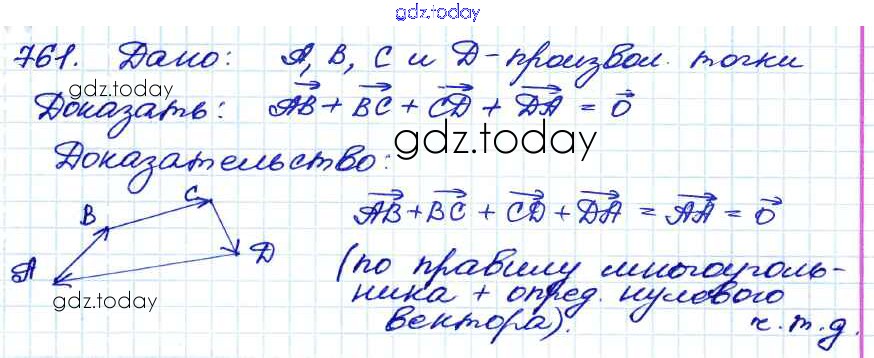 gdz.today
761. Дано: A, B, C и D - произвол. точки
gdz.today
Доказать: AB + BC + CD + DA = 0
gdz.today
Доказательство:
B C
A D
AB + BC + CD + DA = AA = 0
(по правилу многоуголь-
ника + опред. нулевого
вектора). ч.т.д.
gdz.today